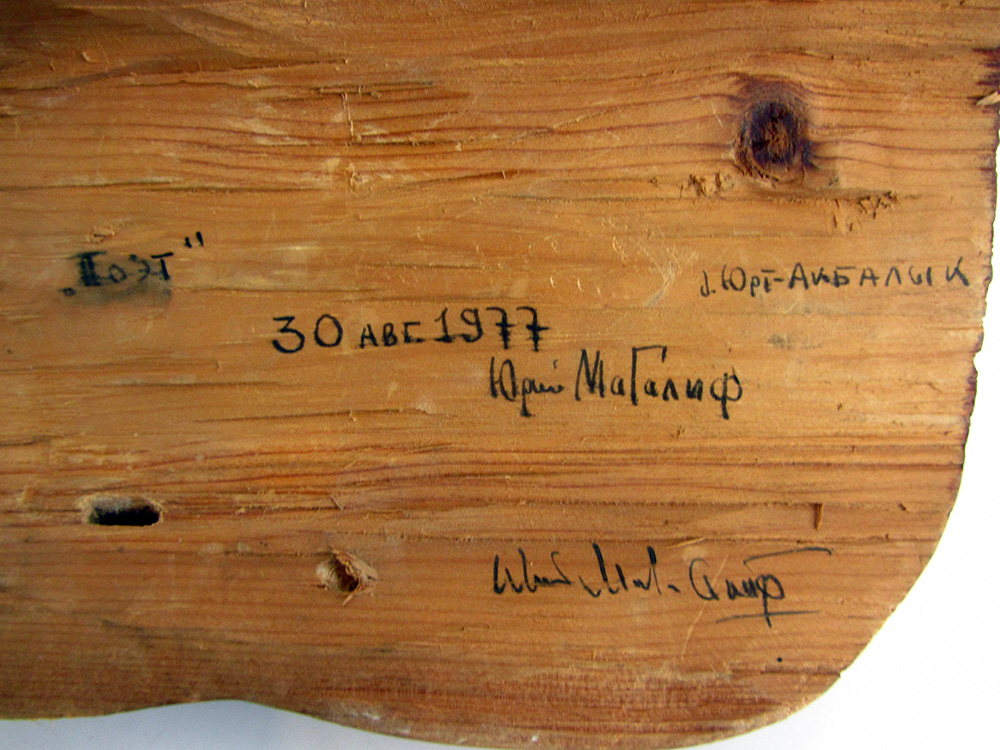 „Поэт"
д. Юрт-Акбалык
30 авг 1977
Юрий Магалиф